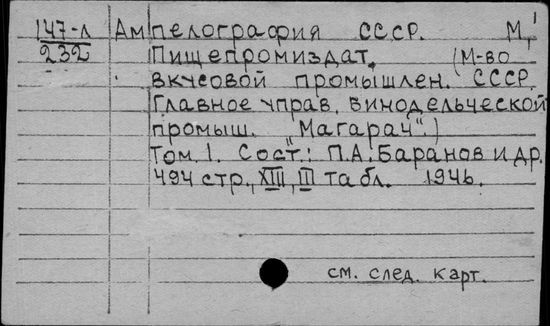 147-л Ампелография СССР. М,
232 Пищепромиздат, (М-во
вкусовой промышлен. СССР.
Главное управ. винодельческой
промыш. "Магарач".)
Том 1. Сост.: П.А. Баранов и др.
494 стр., XIII, III табл. 1946.
см. след. карт.